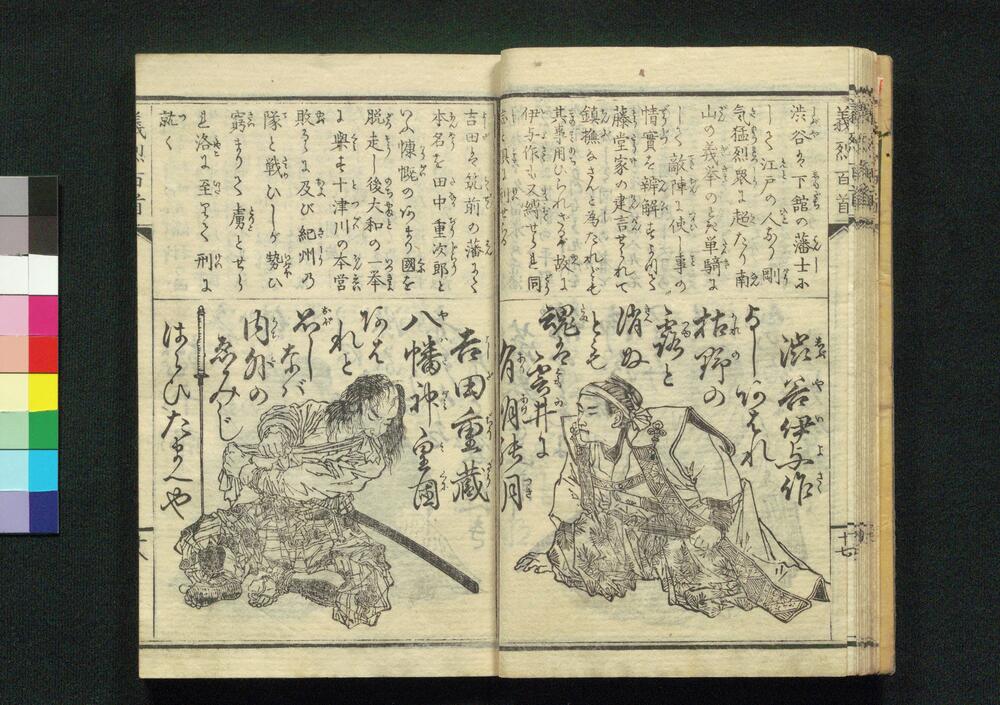 義烈百首
渋谷は下舘の藩士に
して江戸の人なり剛
気猛烈衆に超たり南
山の義挙のとき単騎に
して敵陣に使し事の
情実を辨解するによつて
藤堂家の建言せられて
鎮撫なさんと為たれども
其専用ひられざる故に
伊与作も又縛せられ同
渋谷伊与作
よしあはれ
枯野の
露と
消ぬ
とも
魂は雲井に
有明の月
十七
吉田は筑前の藩にて
本名を田中重次郎と
いふ慷慨のあまり國を
脱走し後大和の一挙
に与す十津川の本営
敗るゝに及び紀州の
隊と戦ひしが勢ひ
窮まりて虜とせら
れ洛に至りて刑に
就く
吉田重蔵
八幡神皇国
あはれと
おぼし
なば
内外の
ゑみじ
はらひたまへや
義烈百首